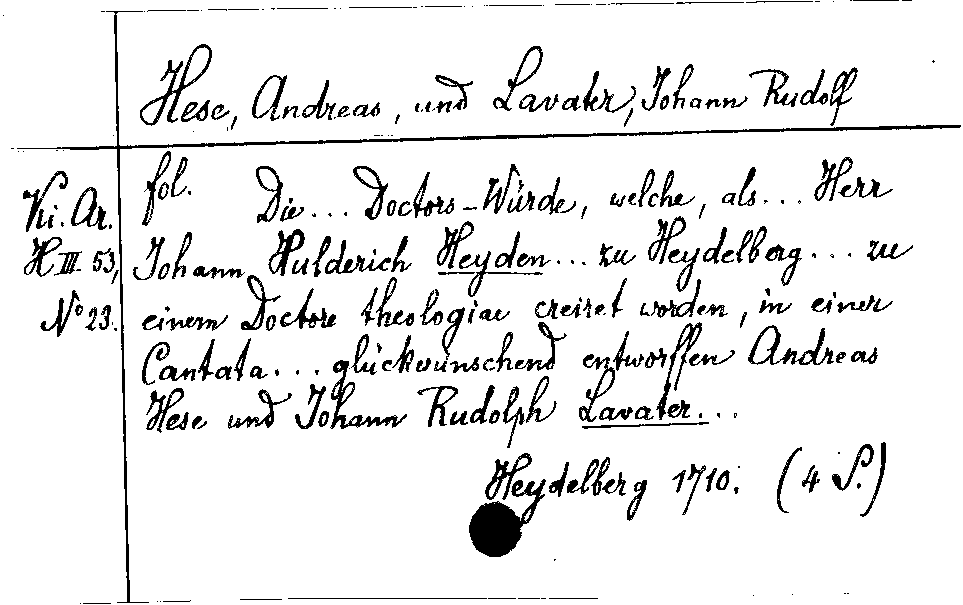 Hese, Andreas, und Lavater, Johann Rudolf
Ki. Ar.
H III 53,
No 23.
fol. Die... Doctors-Würde, welche, als... Herr
Johann Hulderich Heyden... zu Heydelberg... zu
einem Doctore theologiae creiret worden, in einer
Cantata... glückwünschend entworffen Andreas
Hese und Johann Rudolph Lavater...
Heydelberg 1710. (4 S.)